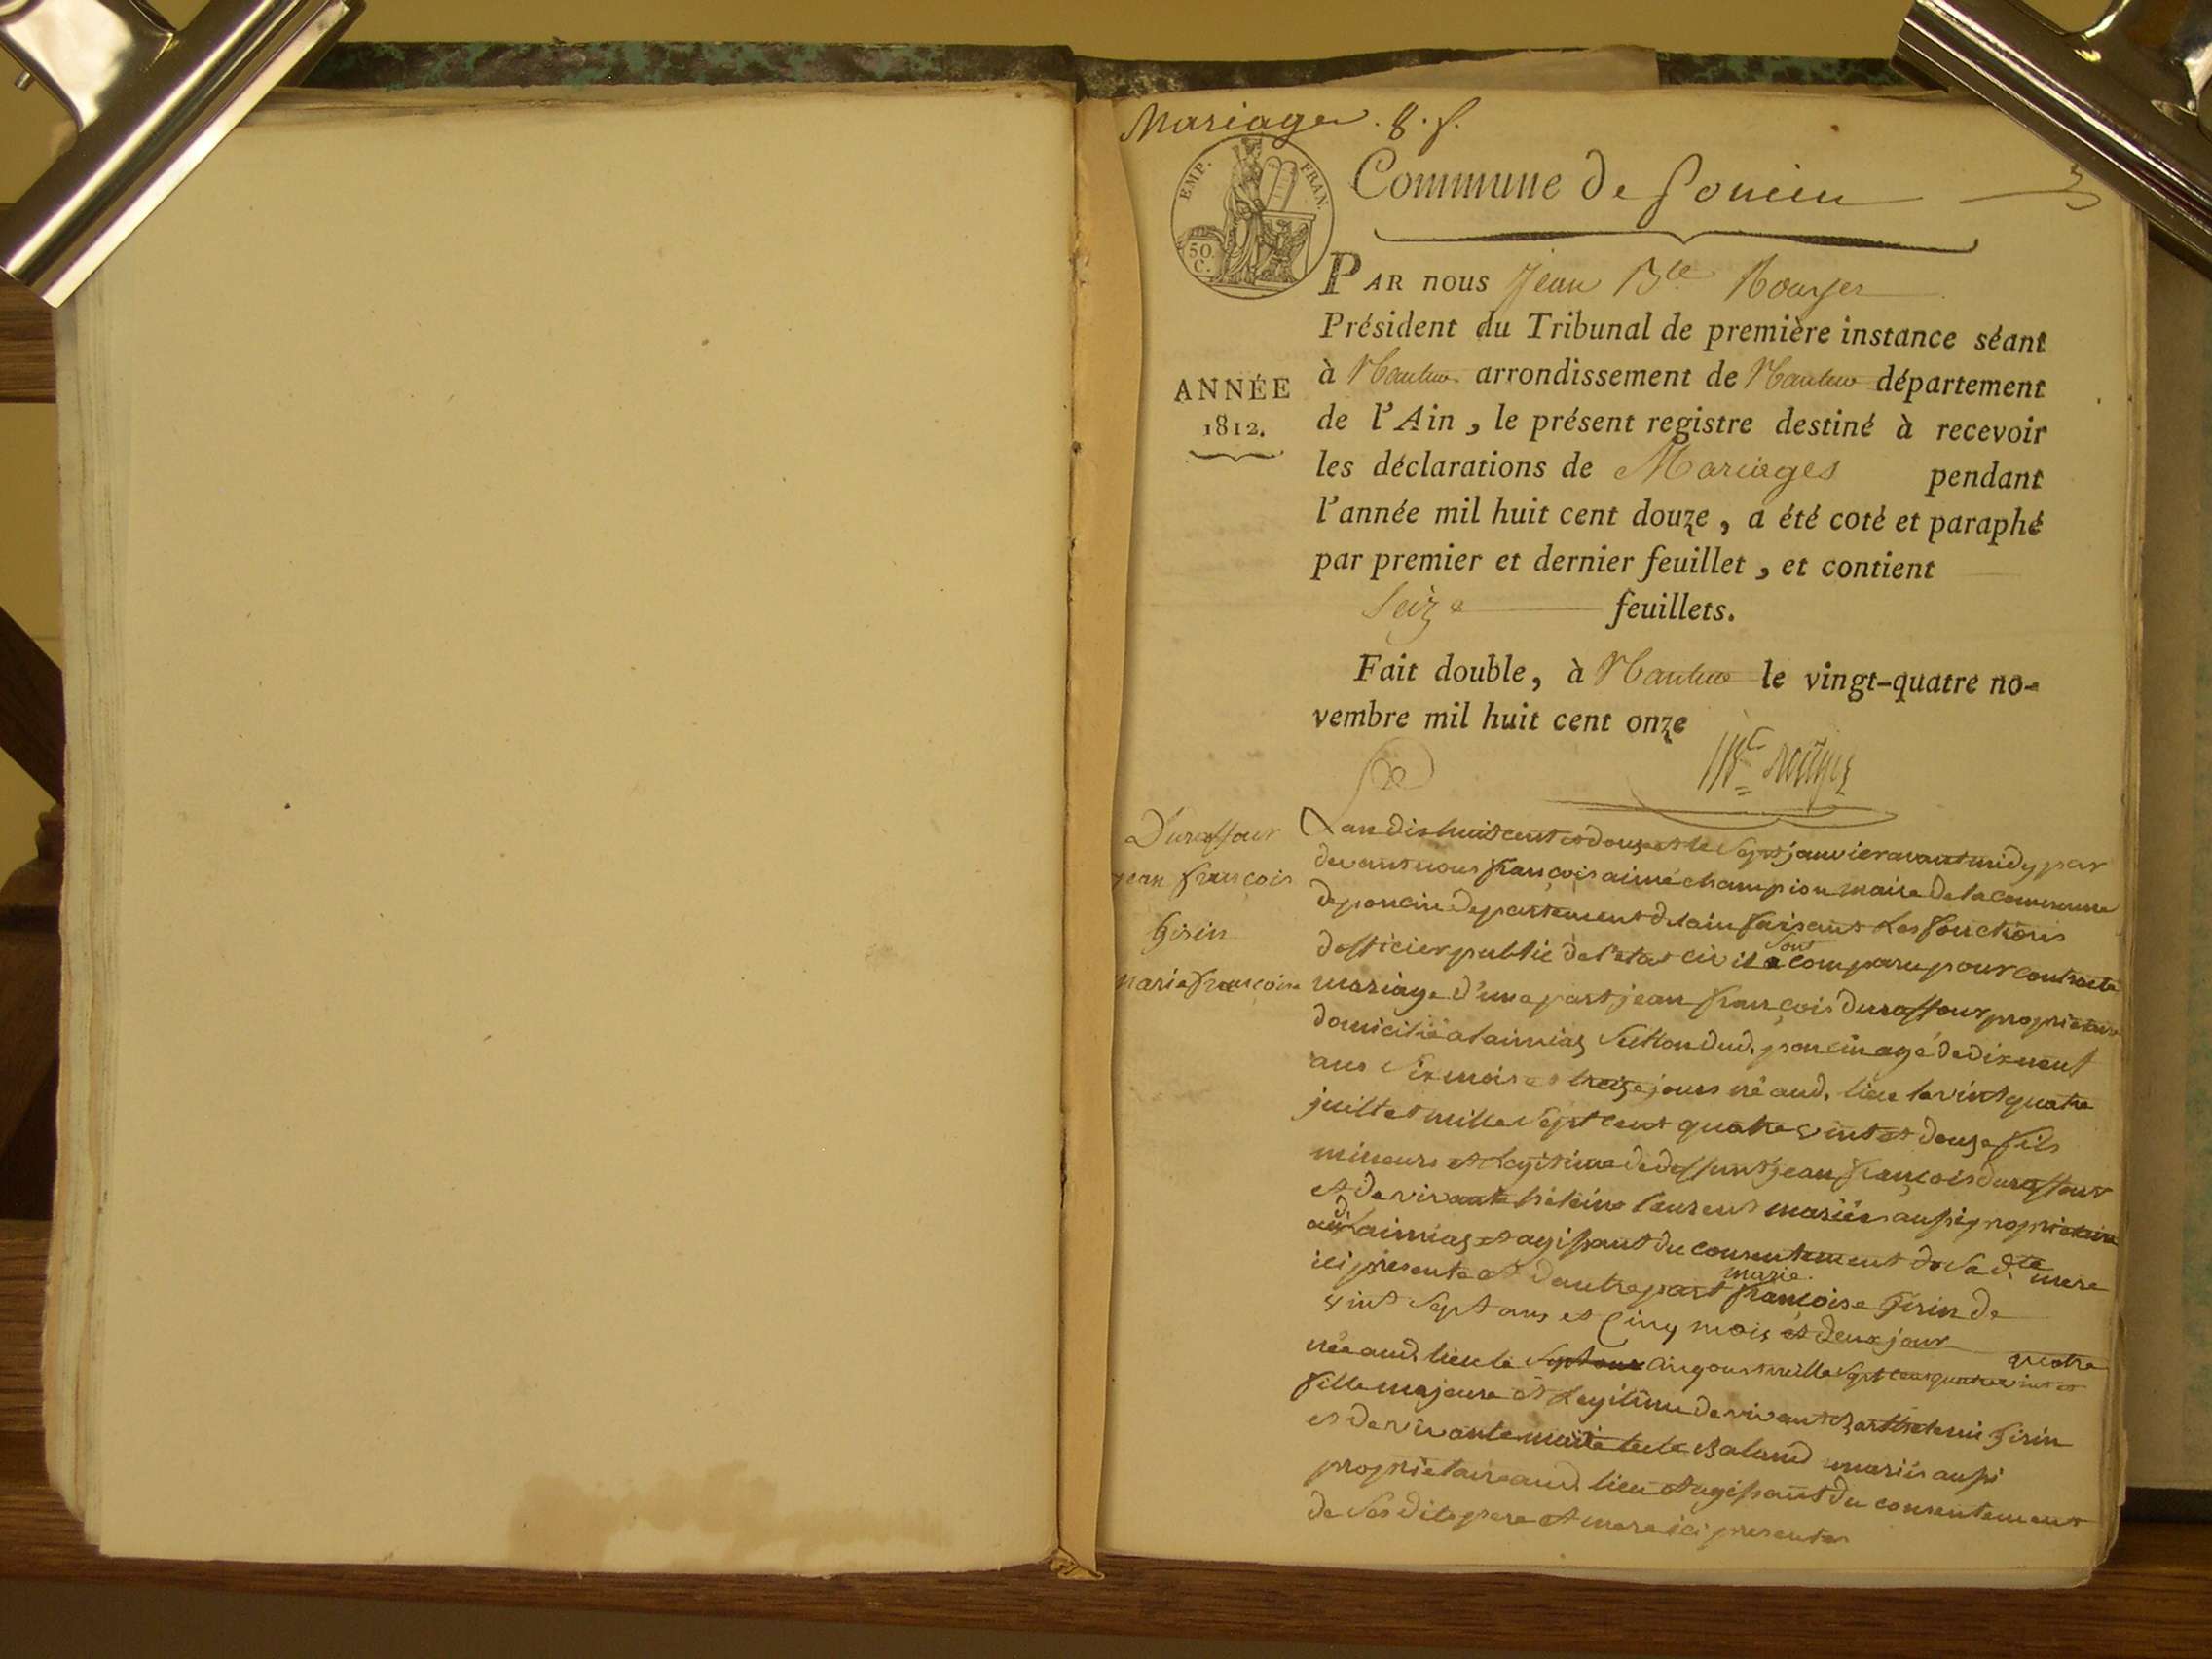 Mariages
Commune de Poncin
EMP. FRAN.
50 C.
PAR nous Jean Bte Rouyer
Président du Tribunal de première instance séant
à Nantua arrondissement de Nantua département
ANNÉE
1812.
de l'Ain, le présent registre destiné à recevoir
les déclarations de Mariages pendant
l'année mil huit cent douze, a été coté et paraphé
par premier et dernier feuillet, et contient
Seize feuillets.
Fait double, à Nantua le vingt-quatre no-
vembre mil huit cent onze
Duraffour
jean françois
Girin
marie françoise
Lan dix huit cent et douze et le Sept janvier avant midy par
devant nous françois aimé champion maire de la commune
de poncin departement de lain faisant Les fonctions
dofficier public de l'etat civil sont comparu pour contracté
mariage d'une part jean françois duraffour proprietaire
domicilié a Section dud. poncin agé de dix neuf
ans Six mois et treize jours né aud. lieu le vint quatre
juillet mille Sept cent quatre vint et douze fils
mineur et Legitime de deffunt jean françois duraffour
et de vivante heleine laurent mariés aussi proprietaire
et agissant du consentement de Sa dte mere
ici presente et dautre part marie françoise Girin de
vint Sept ans et Cinq mois et deux jour
née aud. lieu le cinq oust mille Sept cent quatre vint et quatre
fille majeure et Legitime de vivant Barthelemi Girin
et de vivante Baland mariés aussi
proprietaire aud. lieu et agissant du consentement
de Ses dits pere et mere ici presentes